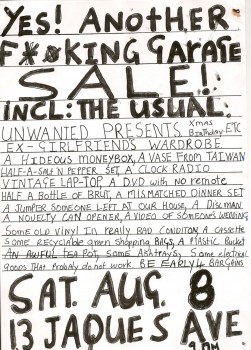 YES! ANOTHER
F**KING GARAGE
SALE!
INCL: THE USUAL:
UNWANTED PRESENTS Xmas Birthday ETC
EX-GIRLFRIENDS WARDROBE
A HIDEOUS MONEYBOX, A VASE FROM TAIWAN
HALF-A-SALT N PEPPER SET, A CLOCK RADIO
VINTAGE LAP-TOP, A DVD WITH NO REMOTE
HALF A BOTTLE OF BRUT, A MISMATCHED DINNER SET
A JUMPER SOMEONE LEFT AT OUR HOUSE, A DISCMAN
A NOVELTY CAN OPENER, A VIDEO OF SOMEONE'S WEDDING
SOME OLD VINYL IN REALLY BAD CONDITION, A CASSETTE
SOME RECYCLABLE GREEN SHOPPING BAGS, A PLASTIC BUCKET
AN AWFUL TEA POT, SOME ASHTRAYS, SOME ELECTRICAL
GOODS THAT PROBABLY DO NOT WORK. BE EARLY 4 BARGINS
SAT AUG. 8
13 JAQUES AVE
9 AM